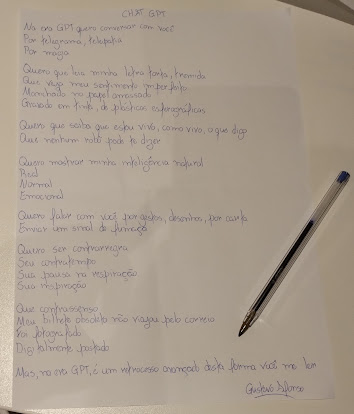 CHAT GPT
Na era GPT quero conversar com você
Por telegrama, telepatia
Por magia
Quero que leia minha letra torta, tremida
Que veja meu sentimento imperfeito
Manchado no papel amassado
Gravado em tinta, de plásticas esferográficas
Quero que saiba que estou vivo, como vivo, o que digo
Que nenhum robô pode te dizer
Quero mostrar minha inteligência natural
Real
Normal
Emocional
Quero falar com você por gestos, desenhos, por carta
Enviar um sinal de fumaça
Quero ser contrarregra
Seu contratempo
Sua pausa na respiração
Sua inspiração
Que contrassenso
Meu bilhete obsoleto não viajou pelo correio
Foi fotografado
Digitalmente postado
Mas, na era GPT, é um retrocesso avançado desta forma você me ler
Gustavo Afonso